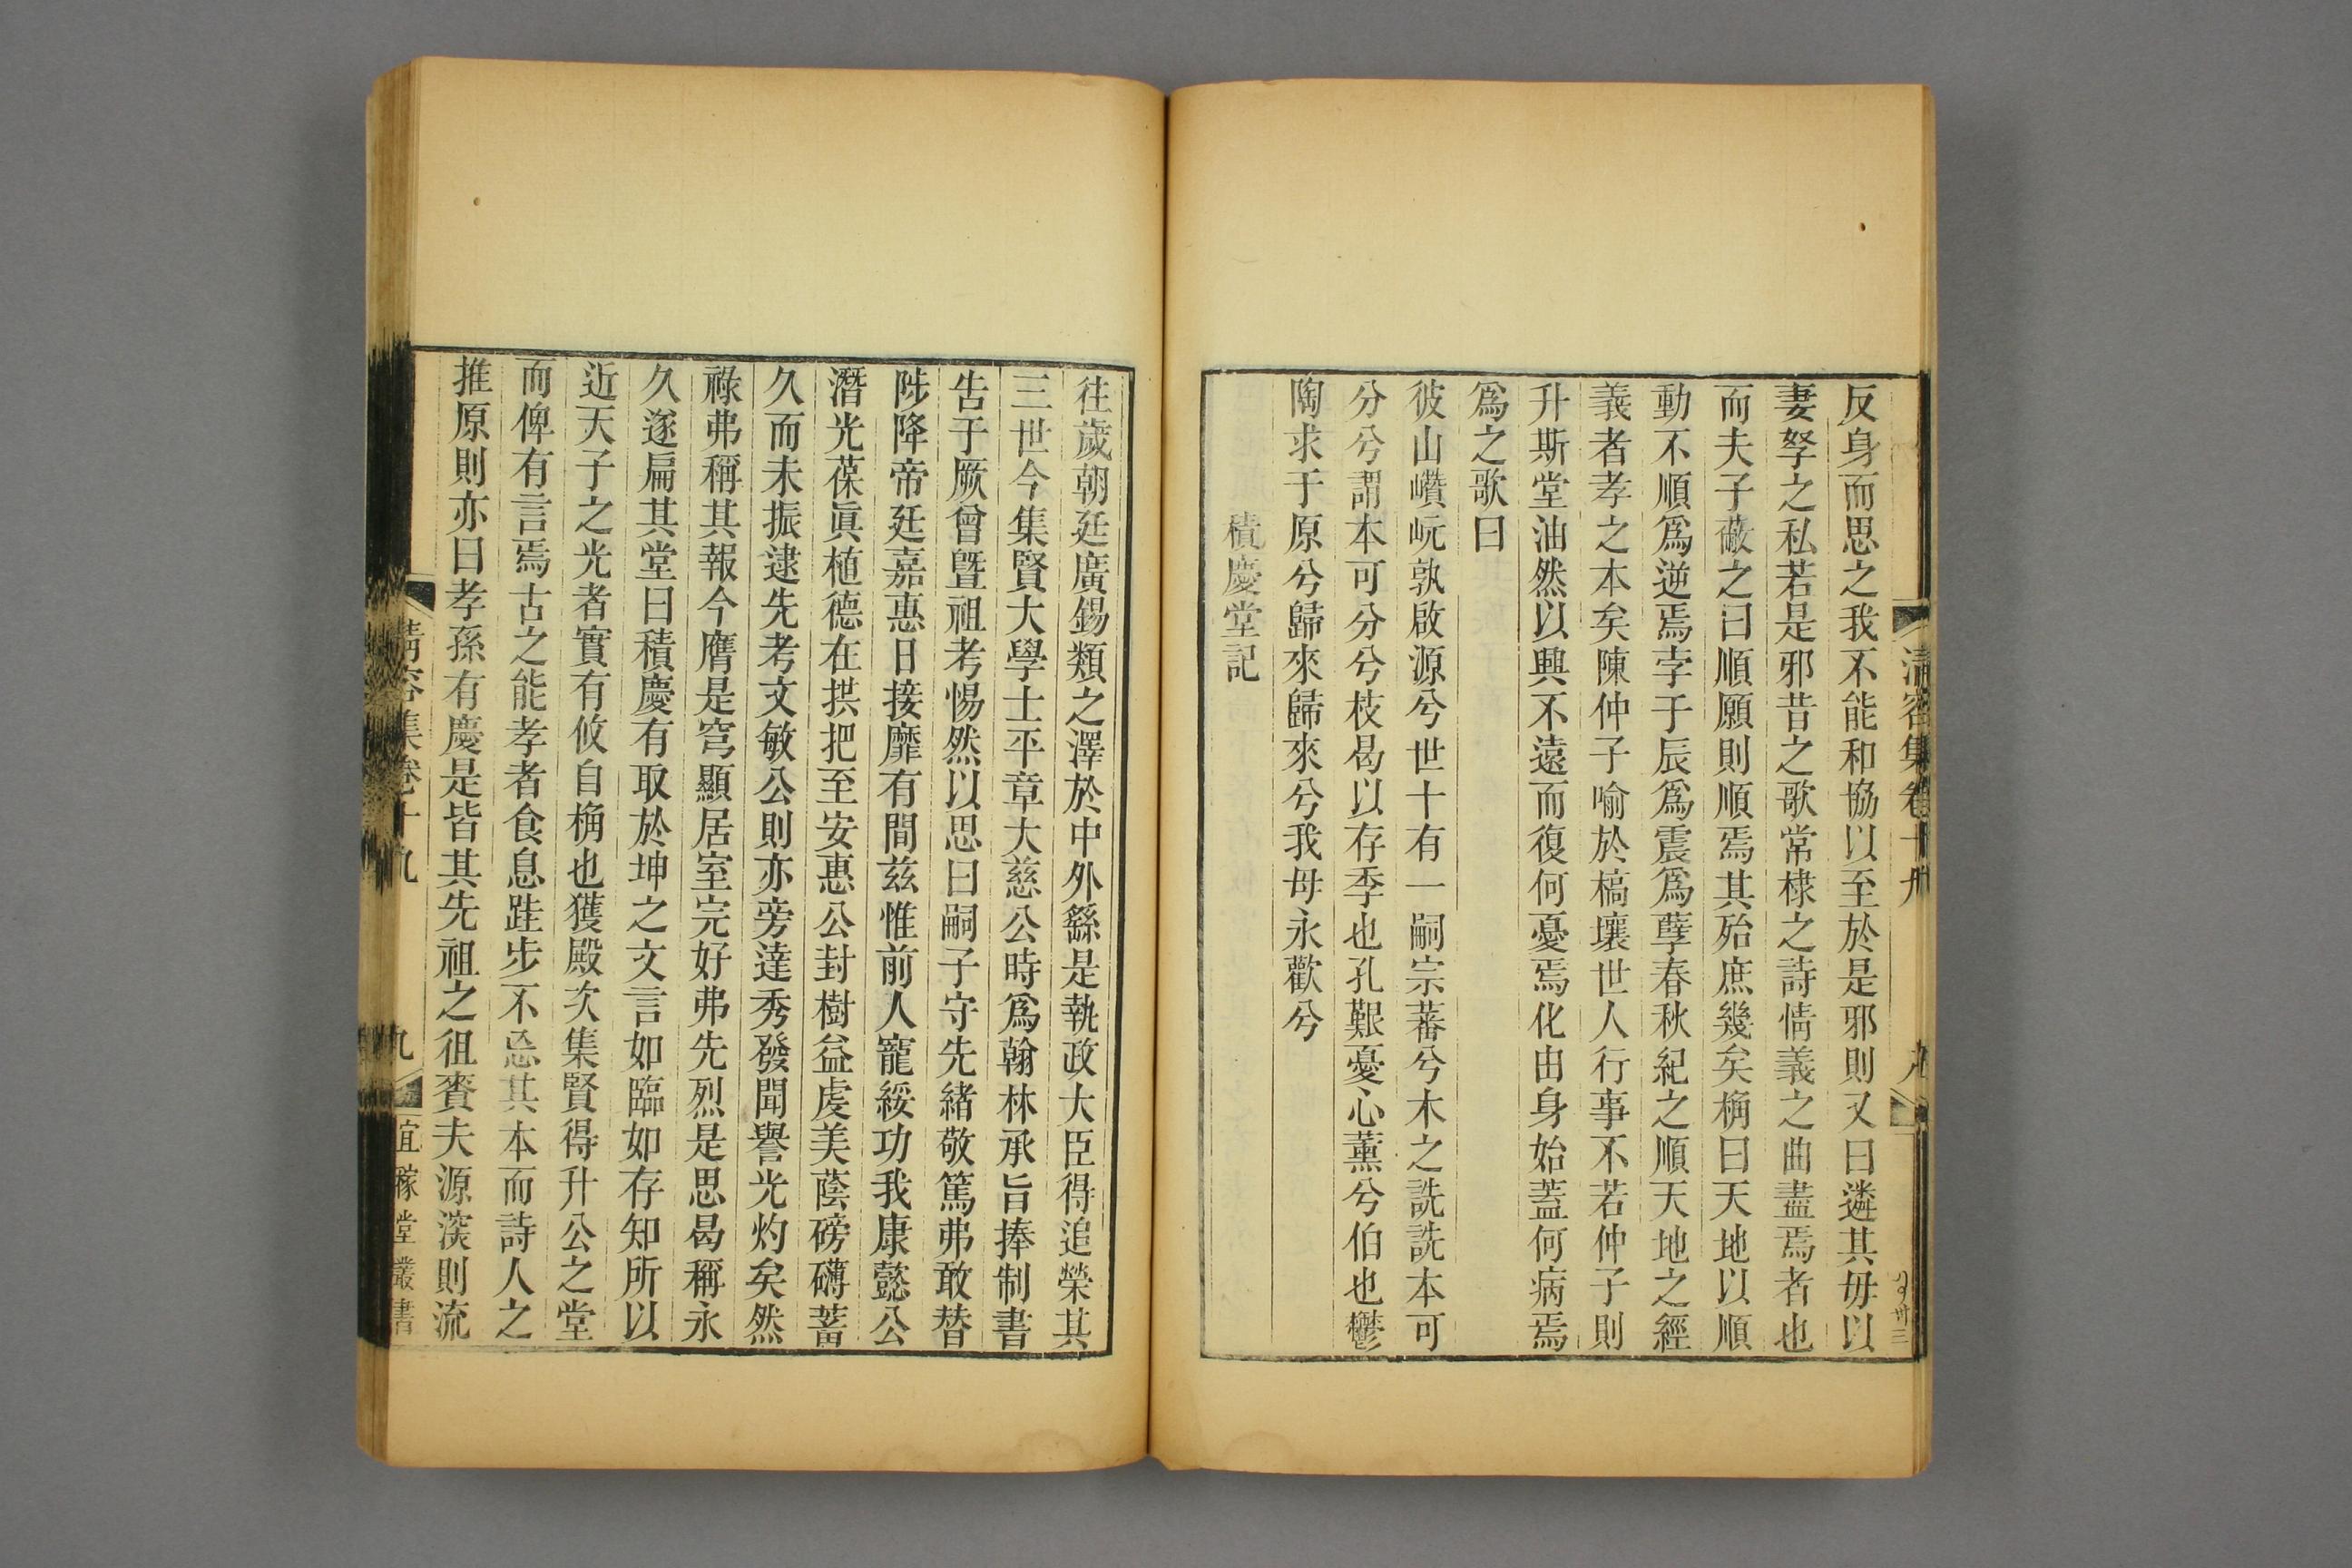 清容集卷十九
九
反身而思之我不能和協以至於是邪則又曰遴其毋以
妻孥之私若是邪昔之歌常棣之詩情義之曲盡焉者也
而夫子蔽之曰順願則順焉其殆庶幾矣桷曰天地以順
動不順爲逆焉孛于辰爲震爲孽春秋紀之順天地之經
義者孝之本矣陳仲子喻於槁壤世人行事不若仲子則
升斯堂油然以興不遠而復何憂焉化由身始蓋何病焉
爲之歌曰
彼山巑岏孰啟源兮世十有一嗣宗蕃兮木之詵詵本可
分兮謂本可分分兮枝曷以存季也孔艱憂心薰兮伯也鬱
陶求于原兮歸來歸來兮我母永歡兮
積慶堂記
往歲朝廷廣錫類之澤於中外繇是執政大臣得追榮其
三世今集賢大學士平章大慈公時爲翰林承旨捧制書
告于厥曾暨祖考惕然以思曰嗣子守先緒敬篤弗敢替
陟降帝廷嘉惠日接靡有間茲惟前人寵綏功我康懿公
潛光葆眞植德在拱把至安惠公封樹益虔美蔭磅礴蓄
久而未振逮先考文敏公則亦旁達秀發聞譽光灼矣然
祿弗稱其報今膺是穹顯居室完好弗先烈是思曷稱永
久遂扁其堂曰積慶有取於坤之文言如臨如存知所以
近天子之光者實有攸自桷也獲殿次集賢得升公之堂
而俾有言焉古之能孝者食息跬步不忘其本而詩人之
推原則亦曰孝孫有慶是皆其先祖之徂賚夫源濚則流
清容集卷十九
九
宜稼堂叢書